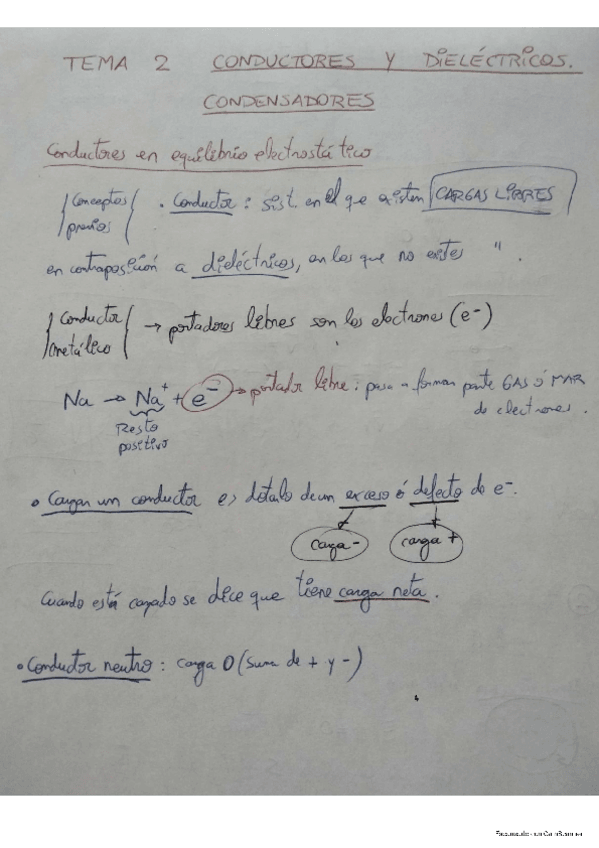 TEMA 2 CONDUCTORES Y DIELÉCTRICOS.
CONDENSADORES
Conductores en equilibrio electrostático
Conceptos previos · Conductor: sist. en el que existen CARGAS LIBRES
en contraposición a dieléctricos, en los que no existen ".
Conductor metálico → portadores libres son los electrones (e-)
Na → Na+ + e- → portador libre: pasa a formar parte GAS ó MAR
de electrones.
Resto
positivo
• Cargar un conductor es dotarlo de un exceso ó defecto de e-.
carga - carga +
Cuando está cargado se dice que tiene carga neta.
• Conductor neutro: carga 0 (suma de + y -)